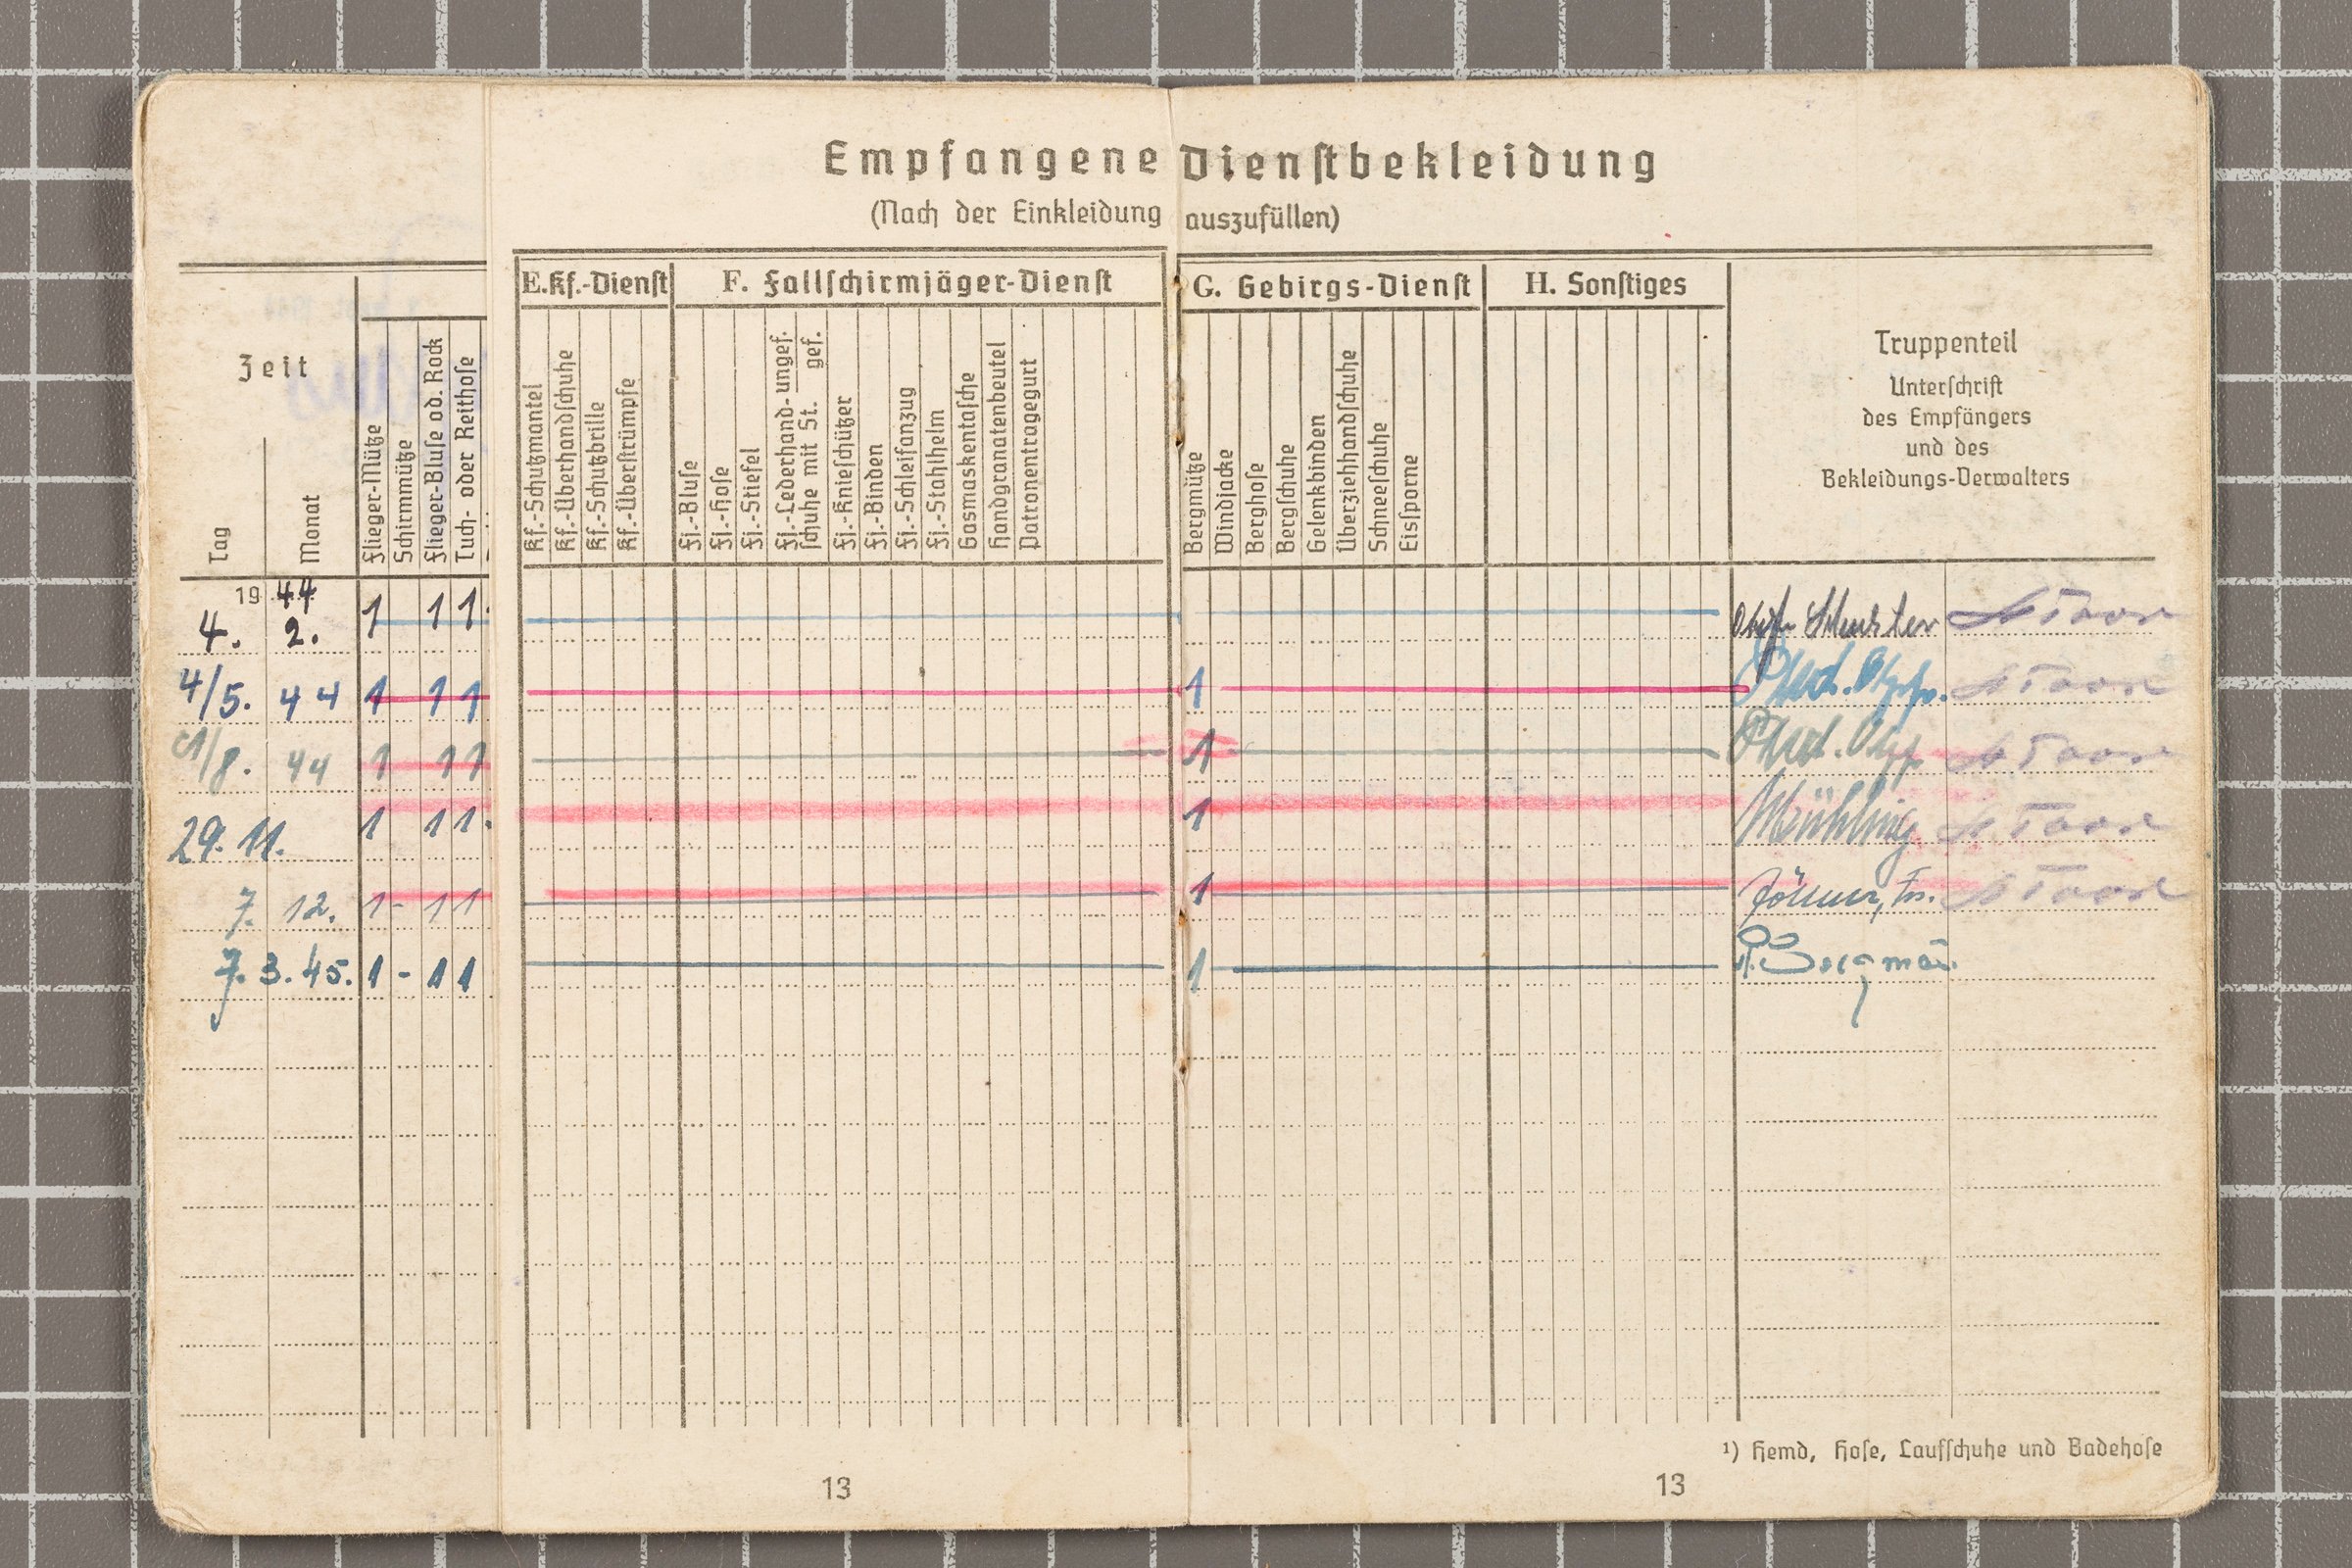 Empfangene Dienstbekleidung
(Nach der Einkleidung auszufüllen)
Zeit
Tag
Monat
Flieger-Mütze
Schirmmütze
Flieger-Bluse od. Rock
Tuch- oder Reithose
E. Kf.-Dienst
Kf.-Schutzmantel
Kf.-Überhandschuhe
Kf.-Schutzbrille
Kf.-Überstrümpfe
F. Fallschirmjäger-Dienst
Fj.-Bluse
Fj.-Hose
Fj.-Stiefel
Fj.-Lederhand- ungef.
schuhe mit St. gef.
Fj.-Knieschützer
Fj.-Binden
Fj.-Schleifanzug
Fj.-Stahlhelm
Gasmaskentasche
Handgranatenbeutel
Patronentragegurt
G. Gebirgs-Dienst
Bergmütze
Windjacke
Berghose
Bergschuhe
Gelenkbinden
Überziehhandschuhe
Schneeschuhe
Eissporne
H. Sonstiges
Truppenteil
Unterschrift
des Empfängers
und des
Bekleidungs-Verwalters
19 44
4. 2. 1 1 1 Schuster
4/5. 44 1 1 1 1
/8. 44 1 1 1 1
29. 11. 1 1 1 1 Mühling
7. 12. 1 - 1 1 1
7. 3. 45. 1 - 1 1 1
¹) Hemd, Hose, Laufschuhe und Badehose
13
13